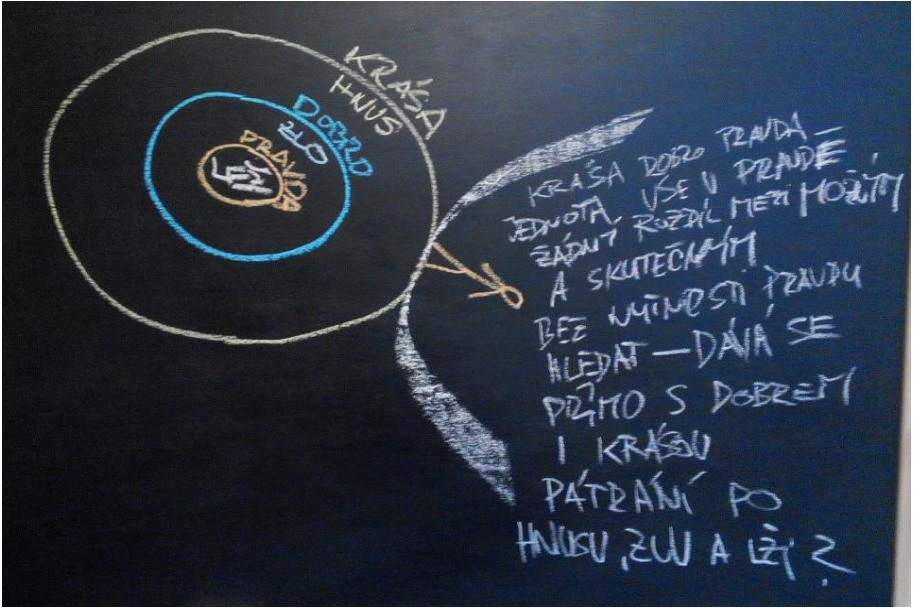 KRÁSA
HNUS
DOBRO
ZLO
PRAVDA
LEŽ
KRÁSA DOBRO PRAVDA –
JEDNOTA, VŠE V PRAVDĚ
ŽÁDNÝ ROZDÍL MEZI MOŽNÝM
A SKUTEČNÝM
BEZ NUTNOSTI PRAVDU
HLEDAT – DÁVÁ SE
PŘÍMO S DOBREM
I KRÁSOU
PÁTRÁNÍ PO
HNUSU, ZLU A LŽI?